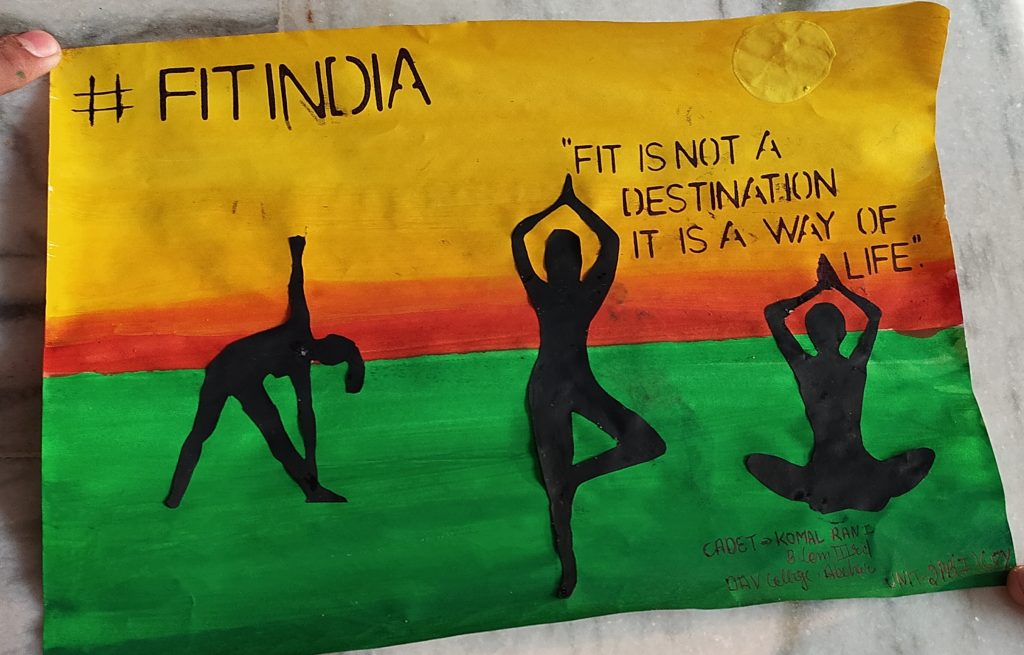 # FIT INDIA
"FIT IS NOT A
DESTINATION
IT IS A WAY OF
LIFE"
CADET → KOMAL RANI
B.Com III
DAV College, Abohar